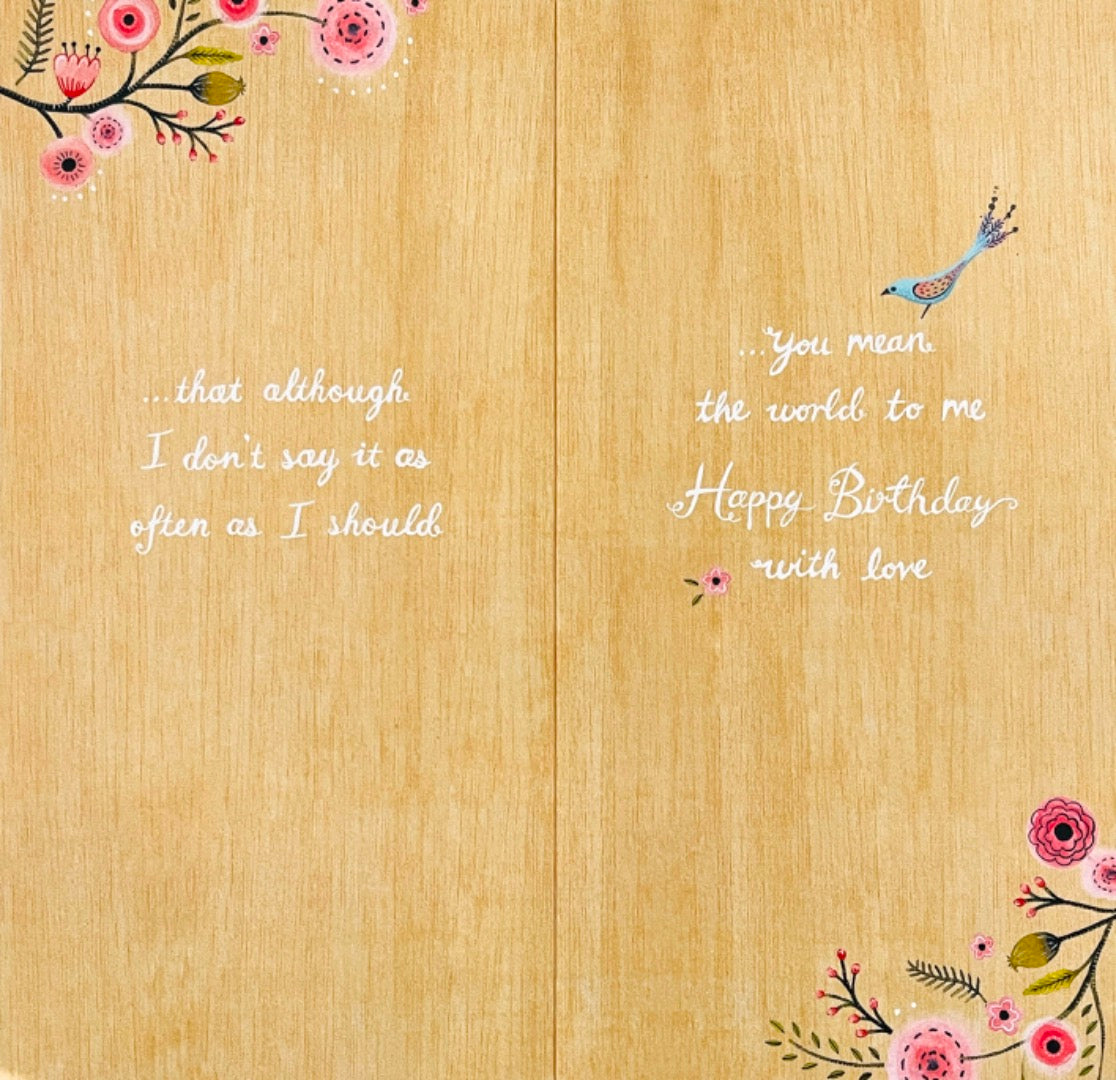 ...that although
I don't say it as
often as I should
...you mean
the world to me
Happy Birthday
with love